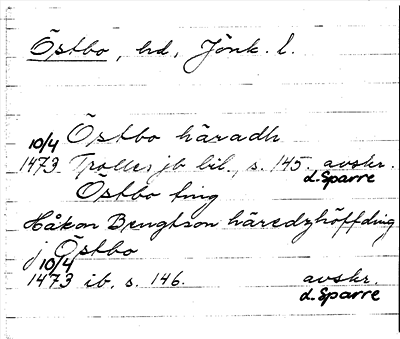 Östbo, hd, Jönk. l.
Östbo häradh
10/4 1473 Trolles jb bil., s. 145. avskr. d. Sparre
Östbo ting
Håkon Bengtson häredzhöffding
j Östbo
10/4 1473 ib. s. 146. avskr. d. Sparre